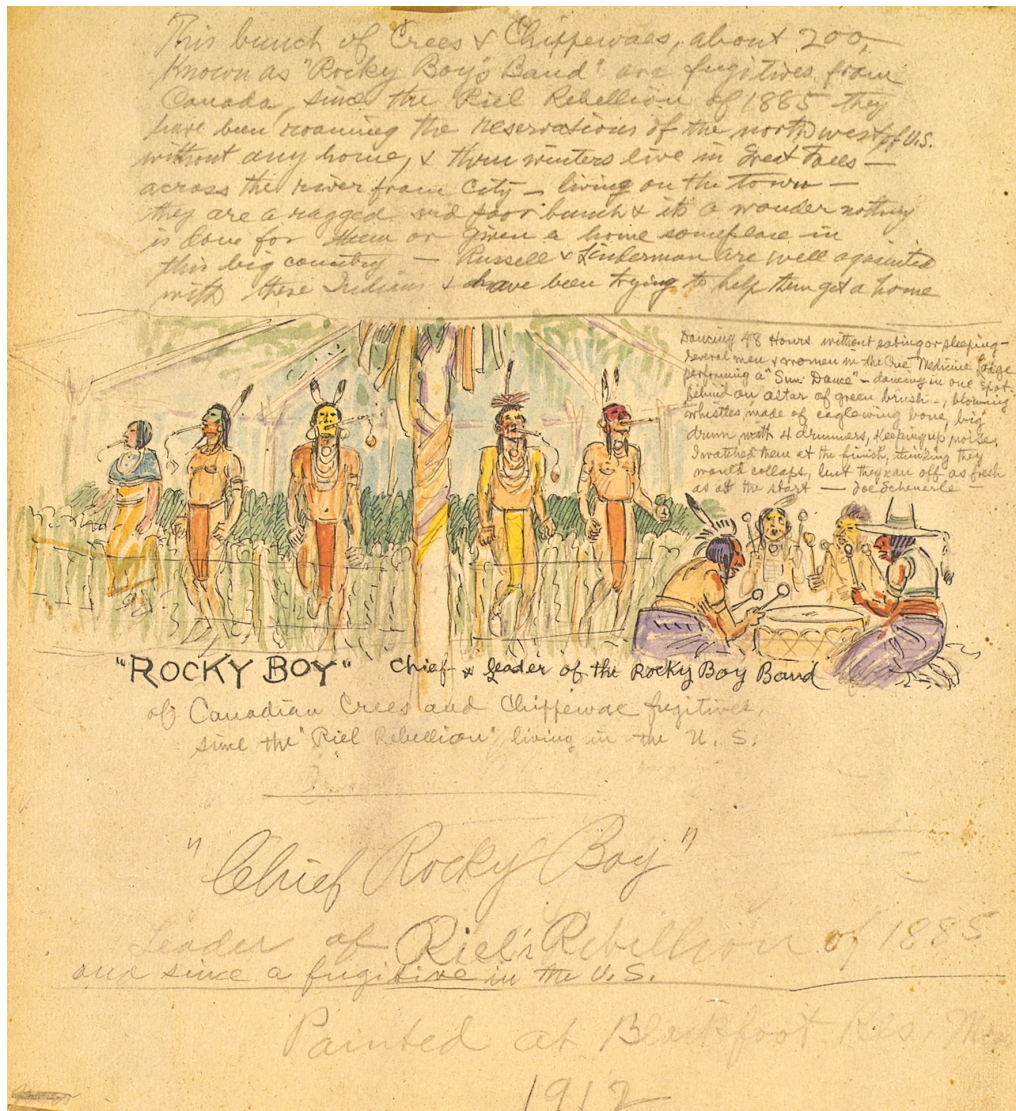 This bunch of Crees & Chippewaes, about 200,
Known as "Rocky Boy's Band" are fugitives from
Canada, since the Riel Rebellion of 1885 they
have been roaming the reservations of the northwest of U.S.
without any home, & thru winters live in Great Falls —
across the river from City — living on the town —
they are a ragged and poor bunch & its a wonder nothing
is done for them or given a home someplace in
this big country — Russell & Linderman are well aquainted
with these Indians & have been trying to help them get a home
Dancing 48 Hours without eating or sleeping —
several men & women in the Cree Medicine Lodge
performing a "Sun Dance" — dancing in one spot
behind an altar of green brush —, blowing
whistles made of eagle wing bone, big
drum, with 4 drummers, keeping up noise,
I watched them at the finish, thinking they
would collaps, but they ran off as fresh
as at the start — Joe Scheuerle —
"ROCKY BOY" Chief & leader of the Rocky Boy Band
of Canadian Crees and Chippewae fugitives,
since the "Riel Rebellion", living in the U.S.
"Chief Rocky Boy"
Leader of Riel's Rebellion of 1885
and since a fugitive in the U.S.
Painted at Blackfoot Res,
1912